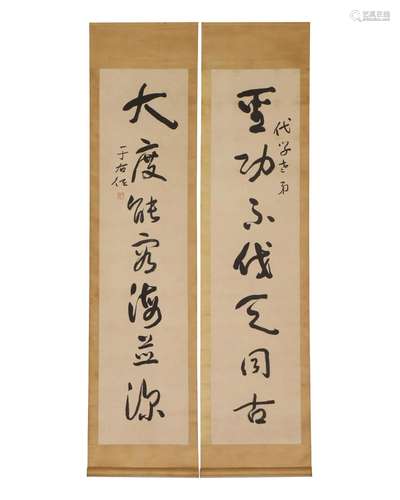 聖功不伐天同古
代学老弟
大度能容海並深
于右任